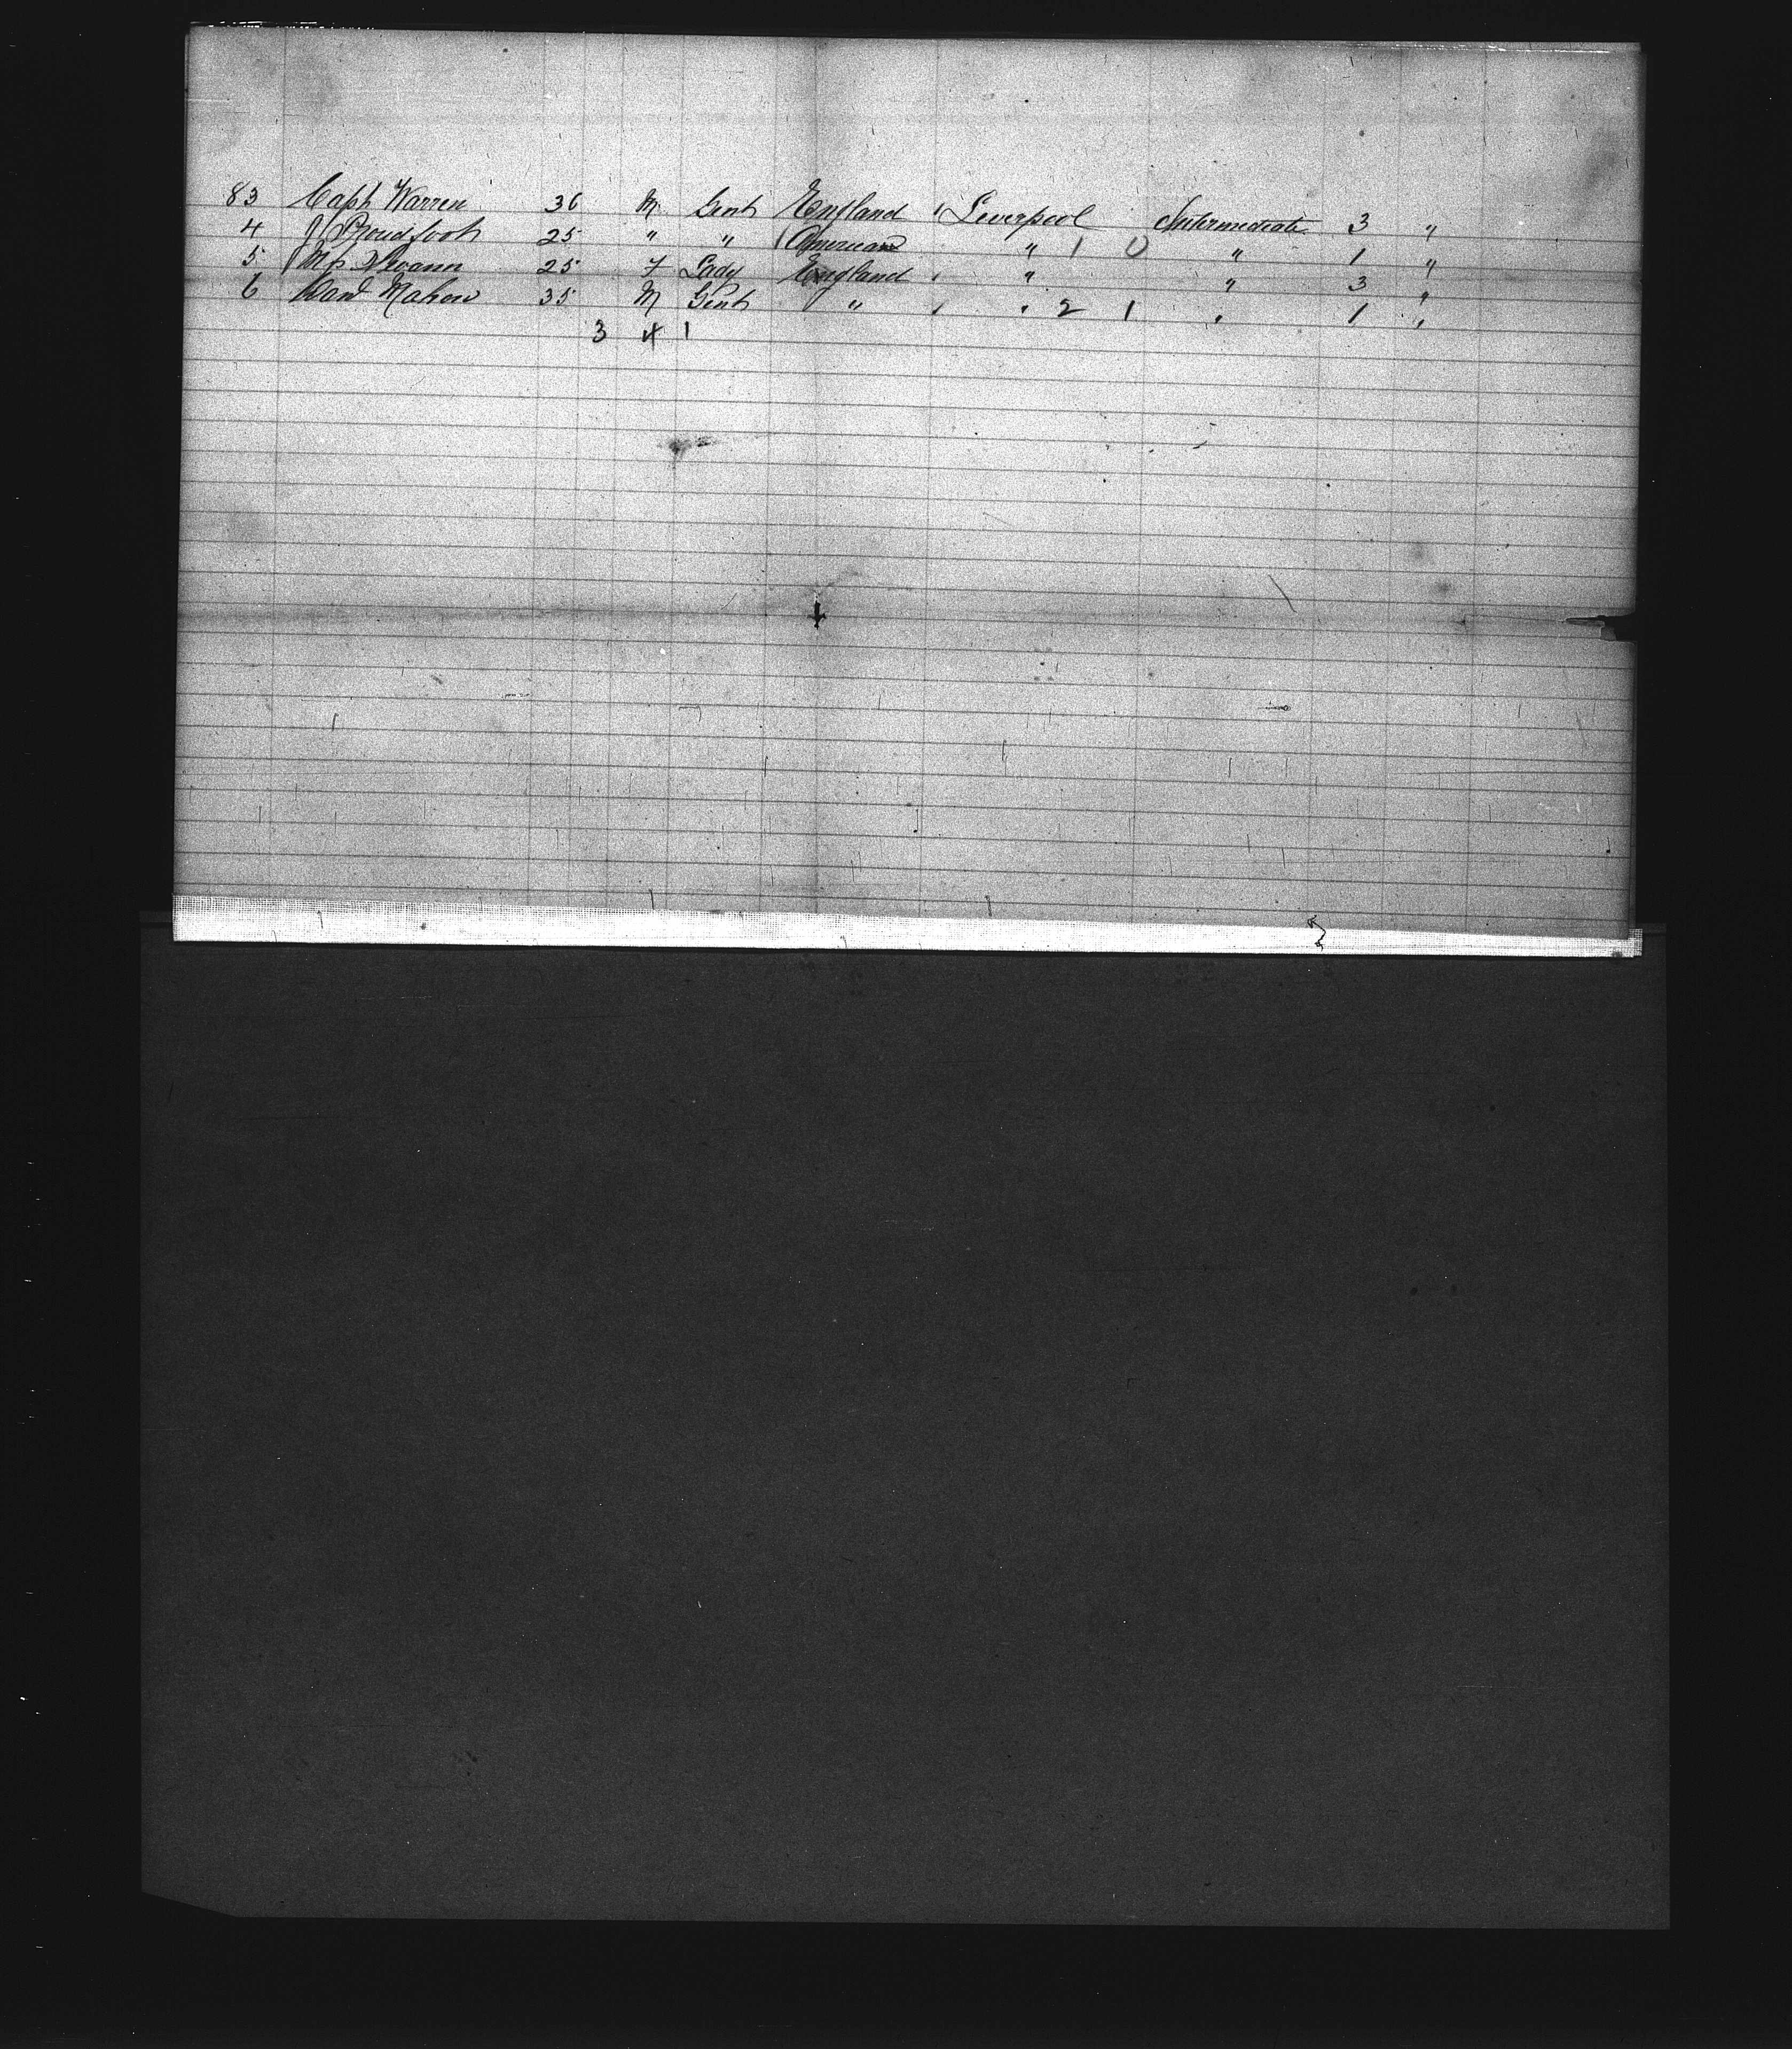 83 Capt Warren 36 M Gent England Liverpool Intermediate 3 "
4 J Proudfoot 25 " " American " 1 0 " 1 "
5 25 F Lady England " " 3 "
6 Mahon 35 M Gent " " 2 1 " 1 "
3 4 1